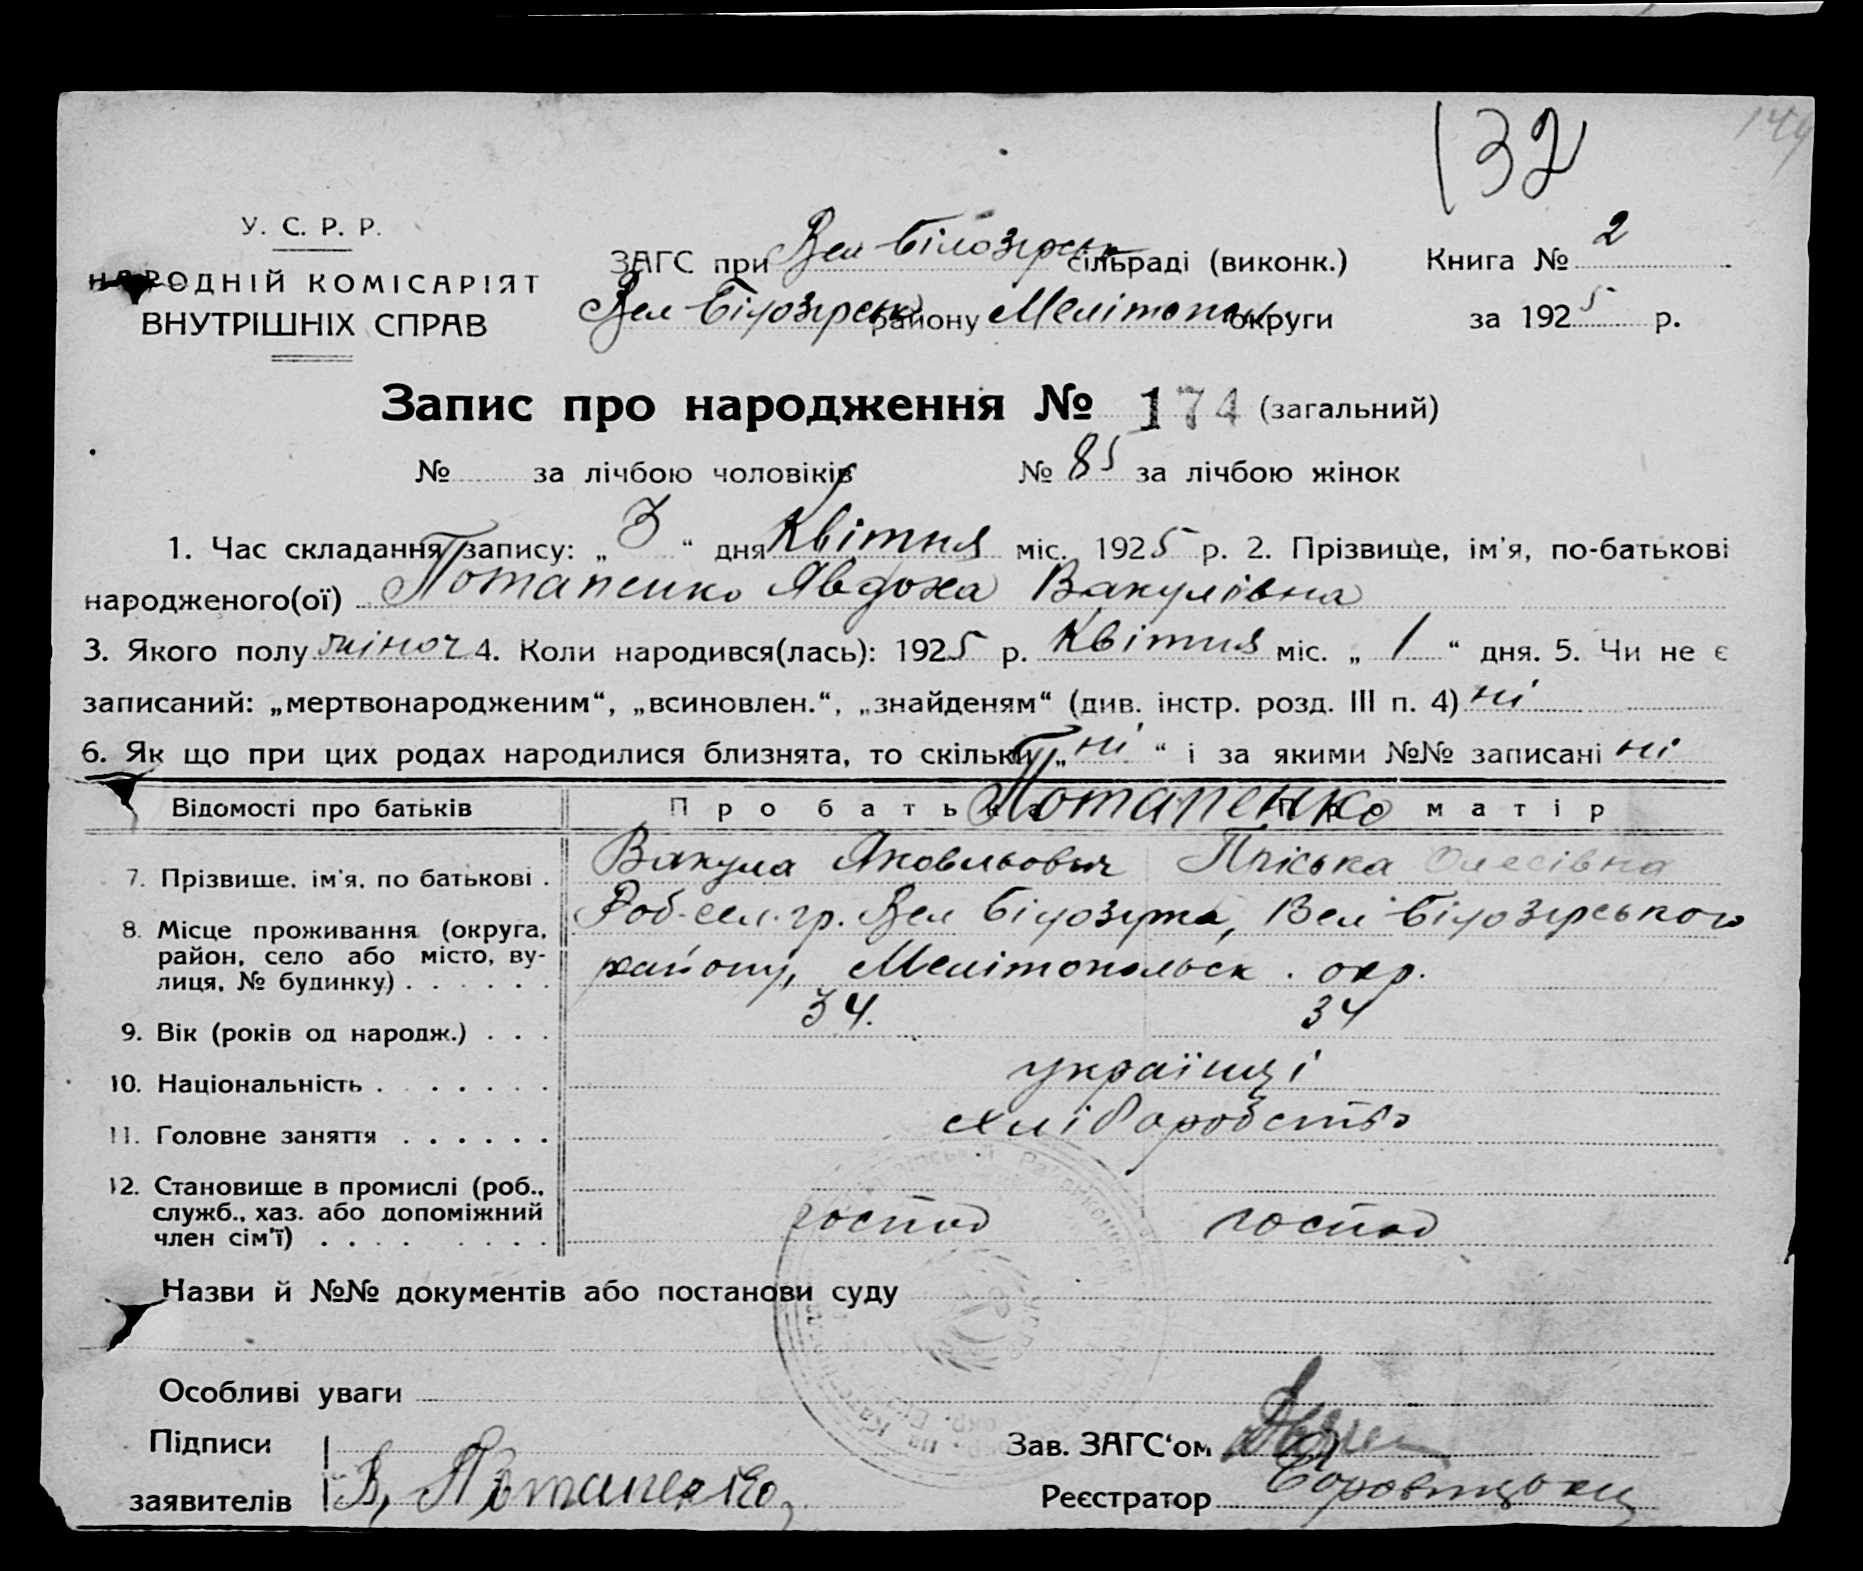 132
149
У. С. Р. Р.
НАРОДНІЙ КОМІСАРІЯТ
ВНУТРІШНІХ СПРАВ
ЗАГС при Вел Білозірськ сільраді (виконк.) Книга № 2
Вел Білозірськ району Мелітополь округи за 1925 р.
Запис про народження № 174 (загальний)
№ за лічбою чоловіків № 85 за лічбою жінок
1. Час складання запису: „3“ дня Квітня міс. 1925 р. 2. Прізвище, ім'я, по-батькові
народженого(ої) Потапенко Явдоха Вакулівна
3. Якого полу жіноч 4. Коли народився(лась): 1925 р. Квітня міс. „1“ дня. 5. Чи не є
записаний: „мертвонародженим“, „всиновлен.“, „знайденям“ (див. інстр. розд. III п. 4) ні
6. Як що при цих родах народилися близнята, то скільки „ні“ і за якими №№ записані ні
Відомості про батьків Про батька Про матір
Потапенко
7. Прізвище, ім'я, по батькові . Вакула Яковльович Пріська Олесівна
8. Місце проживання (округа, Роб-сел. гр. Вел Білозірка, Вел Білозірського
район, село або місто, ву- району, Мелітопольск. окр.
лиця, № будинку) . . . . . .
9. Вік (років од народж.) . . . 34. 34
10. Національність . . . . . . . українці
11. Головне заняття . . . . . . хліборобство
12. Становище в промислі (роб.,
служб., хаз. або допоміжний господ господ
член сім'ї) . . . . . . . .
Назви й №№ документів або постанови суду
Особливі уваги
Підписи Зав. ЗАГС'ом
заявителів В. Потапенко Реєстратор